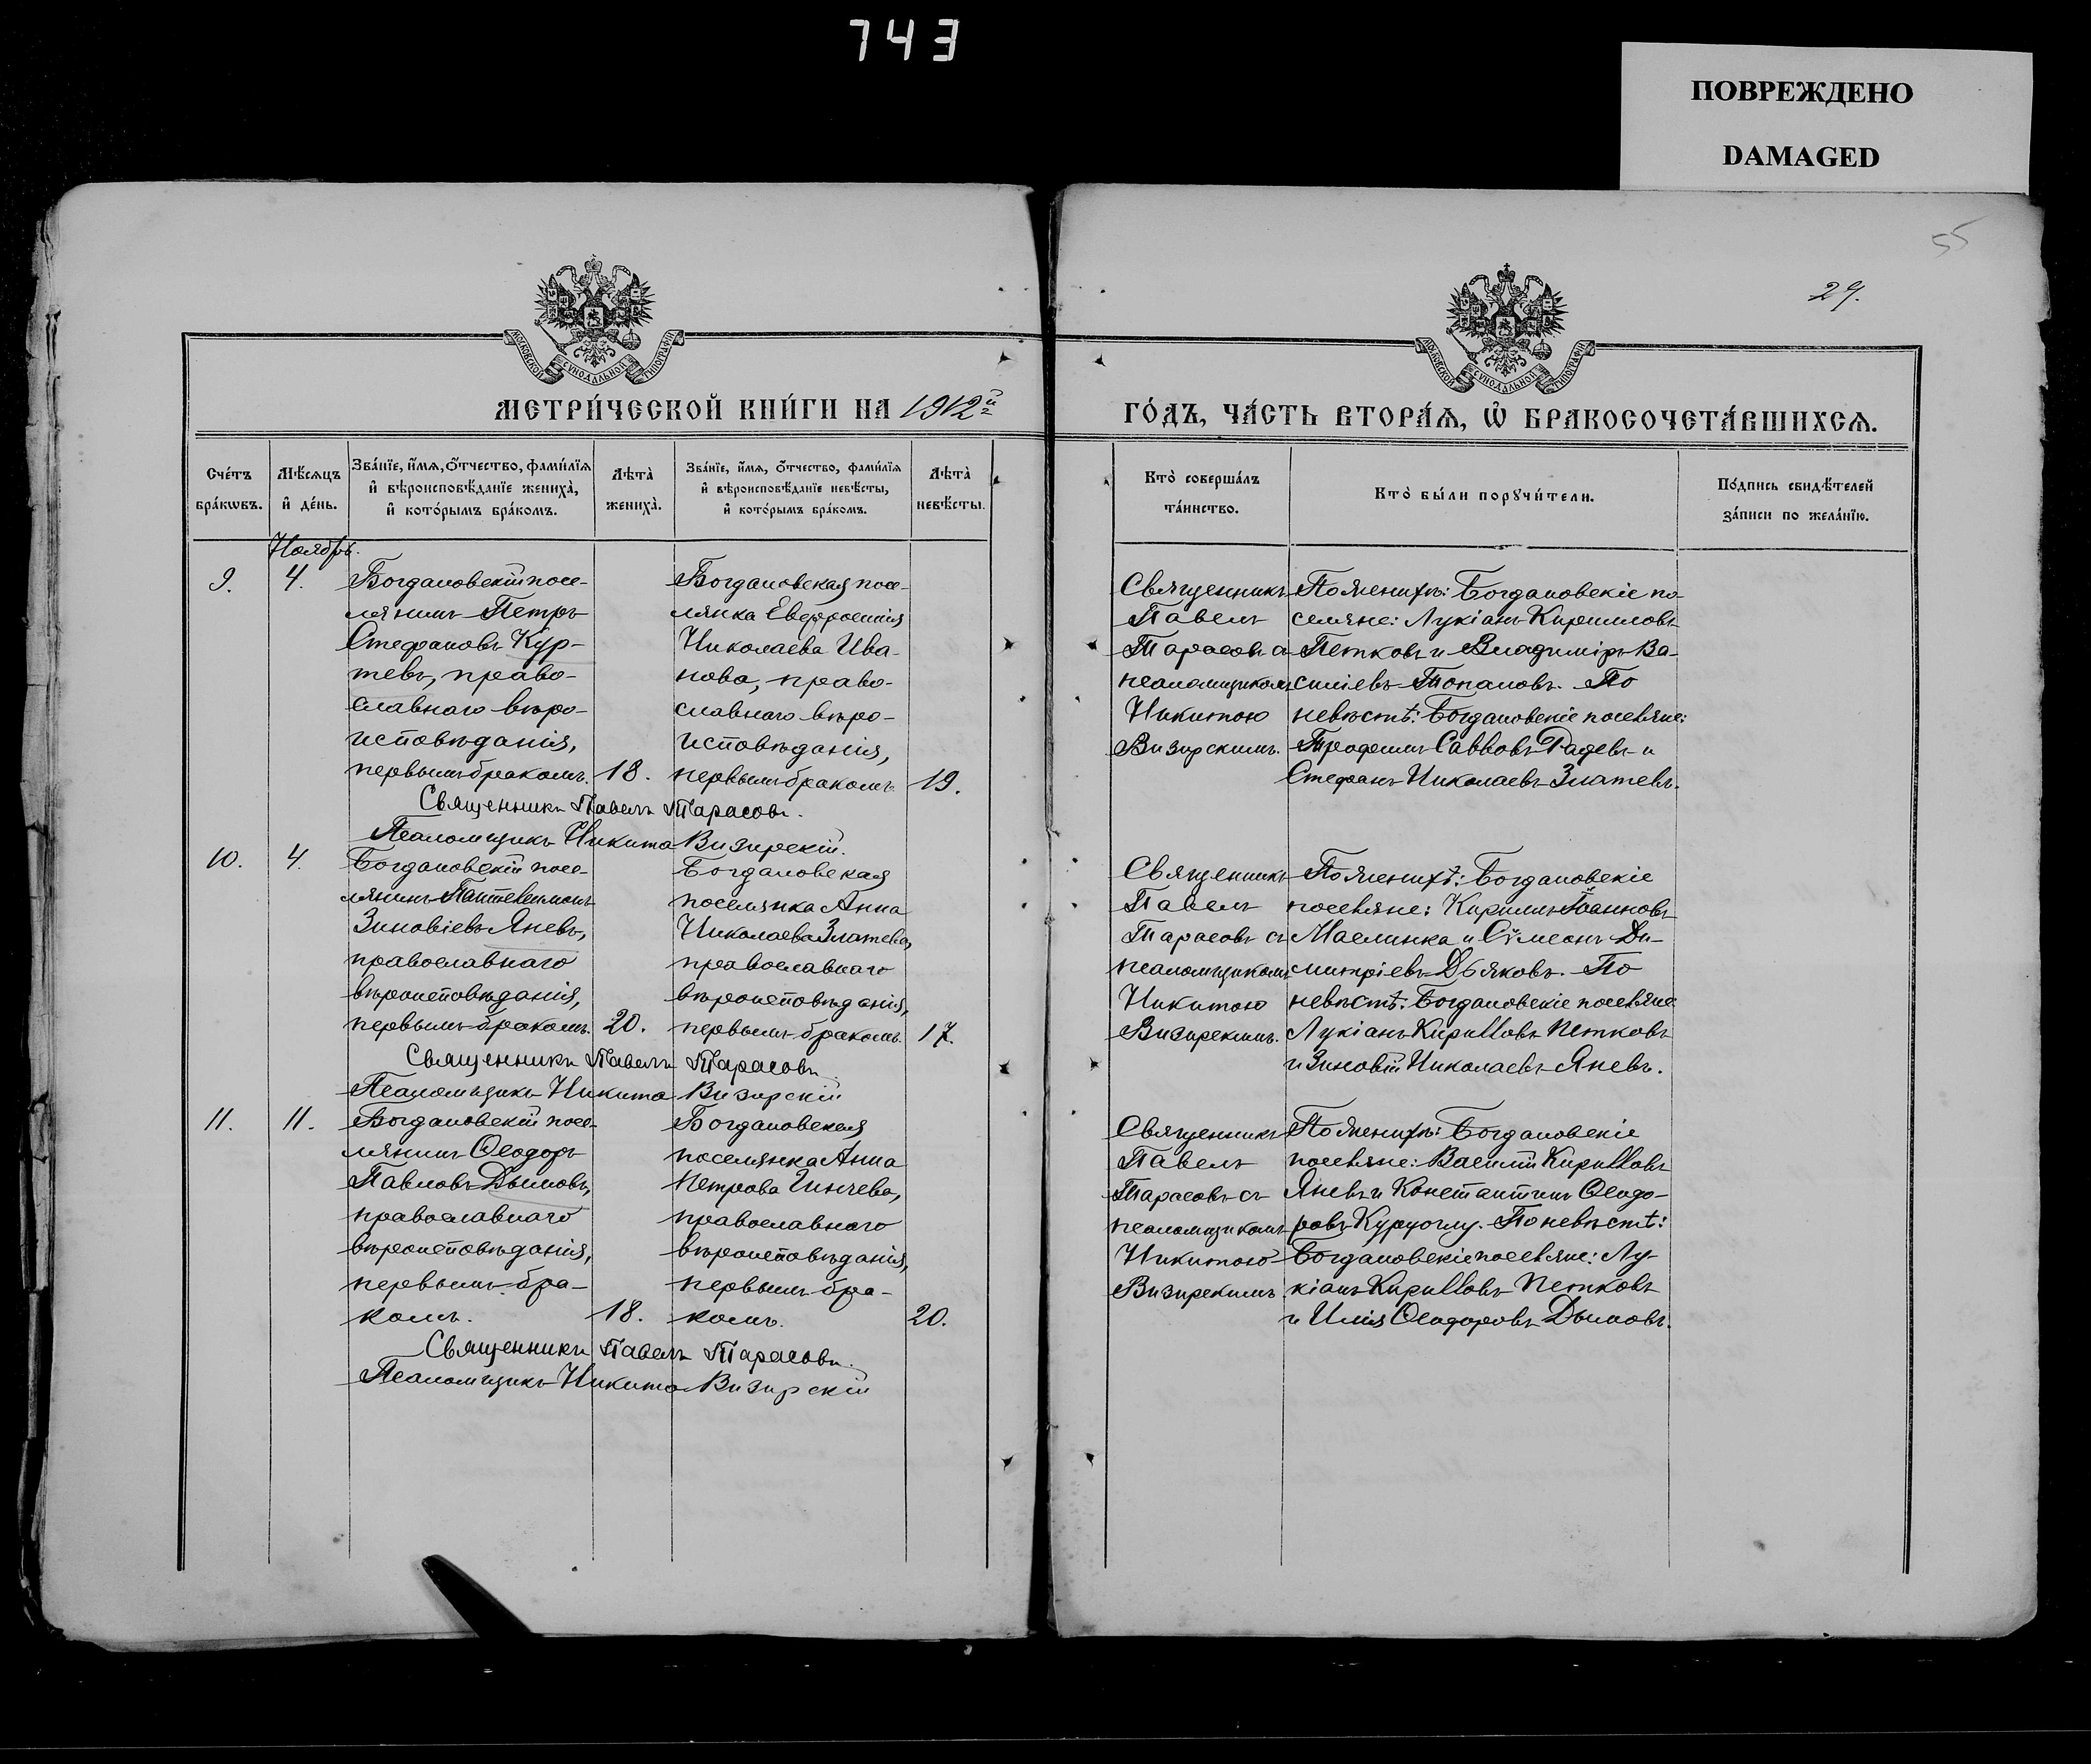 743
ПОВРЕЖДЕНО
DAMAGED
55
29.
МОСКОВСКОЙ СѴНОДАЛЬНОЙ ТИПОГРАФІИ
МОСКОВСКОЙ СѴНОДАЛЬНОЙ ТИПОГРАФІИ
МЕТРИ́ЧЕСКОЙ КНИ́ГИ НА 1912й
ГО́ДЪ, ЧА́СТЬ ВТОРА́Ѧ, Ѿ БРАКОСОЧЕТА́ВШИХСѦ.
Сче́тъ бра́кѡвъ.
Мѣ́сѧцъ и҆ де́нь.
Зва́нїе, и҆́мѧ, ѻ҆́тчество, фами́лїѧ
и҆ вѣроисповѣ́данїе жениха̀,
и҆ кото́рымъ бра́комъ.
Лѣта̀ жениха̀.
Зва́нїе, и҆́мѧ, ѻ҆́тчество, фами́лїѧ
и҆ вѣроисповѣ́данїе невѣ́сты,
и҆ кото́рымъ бра́комъ.
Лѣта̀ невѣ́сты.
Кто̀ соверша́лъ
та́инство.
Кто̀ бы́ли порꙋчи́тели.
По́дпись свидѣ́телей
за́писи по жела́нїю.
Ноябрь.
9.
4.
Богдановскій посе-
лянинъ Петръ
Стефановъ Кур-
тевъ, право-
славнаго вѣро-
исповѣданія,
первымъ бракомъ.
18.
Богдановская посе-
лянка Евфросинія
Николаева Ива-
нова, право-
славнаго вѣро-
исповѣданія,
первымъ бракомъ
19.
Священникъ
Павелъ
Тарасовъ с
псаломщикомъ
Никитою
Визирскимъ.
По женихѣ: Богдановскіе по-
селяне: Лукіанъ Кирилловъ
Петковъ и Владиміръ Ва-
силіевъ Топаловъ. По
невѣстѣ: Богдановскіе поселяне:
Трофимъ Савовъ Радевъ и
Стефанъ Николаевъ Златевъ.
Священникъ Павелъ Тарасовъ.
Псаломщикъ Никита Визирскій.
10.
4.
Богдановскій посе-
лянинъ Пантелеимонъ
Зиновіевъ Яневъ,
православнаго
вѣроисповѣданія,
первымъ бракомъ.
20.
Богдановская
поселянка Анна
Николаева Златева,
православнаго
вѣроисповѣданія,
первымъ бракомъ.
17.
Священникъ
Павелъ
Тарасовъ съ
псаломщикомъ
Никитою
Визирскимъ.
По женихѣ: Богдановскіе
поселяне: Кириллъ Іоанновъ
Маслинка и Сѵмеонъ Ди-
митріевъ Дьяковъ. По
невѣстѣ: Богдановскіе поселяне
Лукіанъ Кирилловъ Петковъ
и Зиновій Николаевъ Яневъ.
Священникъ Павелъ Тарасовъ
Псаломщикъ Никита Визирскій
11.
11.
Богдановскій посе-
лянинъ Ѳеодоръ
Павловъ Дымовъ,
православнаго
вѣроисповѣданія,
первымъ бра-
комъ.
18.
Богдановская
поселянка Анна
Петрова Гинчева,
православнаго
вѣроисповѣданія,
первымъ бра-
комъ.
20.
Священникъ
Павелъ
Тарасовъ съ
псаломщикомъ
Никитою
Визирскимъ.
По женихѣ: Богдановскіе
поселяне: Василій Кирилловъ
Яневъ и Константинъ Ѳеодо-
ровъ Куруоглу. По невѣстѣ:
Богдановскіе поселяне: Лу-
кіанъ Кирилловъ Петковъ
и Илія Ѳеодоровъ Дымовъ.
Священникъ Павелъ Тарасовъ.
Псаломщикъ Никита Визирскій